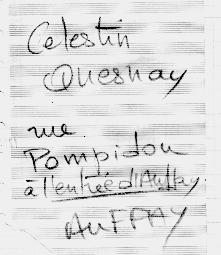 Celestin
Quesnay
rue
Pompidou
à l'entrée d'Auffay
AUFFAY